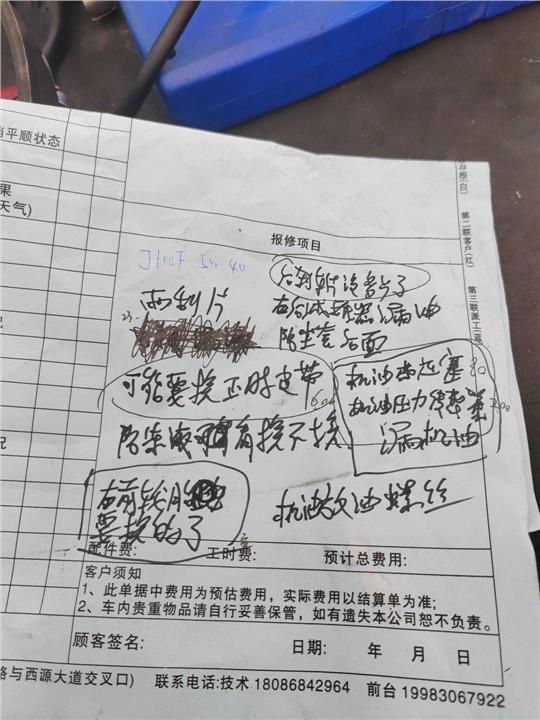 当平顺状态
果
天气)
存根(白)
第二联客户(红)
第三联派工(蓝
报修项目
5w-40
雨刮片
后刹车片没多少了
右后减振器漏油
防尘套后面
可能要换正时皮带
机油
机油压力传感器
漏机油
右前轮胎
要换的了
机油放油螺丝
配件费:
工时费:
预计总费用:
客户须知
1、此单据中费用为预估费用，实际费用以结算单为准;
2、车内贵重物品请自行妥善保管，如有遗失本公司恕不负责。
顾客签名:
日期: 年 月 日
路与西源大道交叉口) 联系电话:技术 18086842964 前台 19983067922